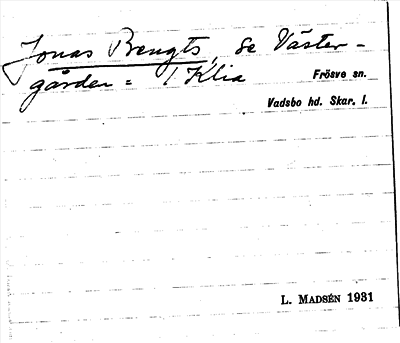 Jonas Bengts, Se Väster-
gården = 1 Klia
Frösve sn.
Vadsbo hd. Skar. l.
L. MADSÉN 1931